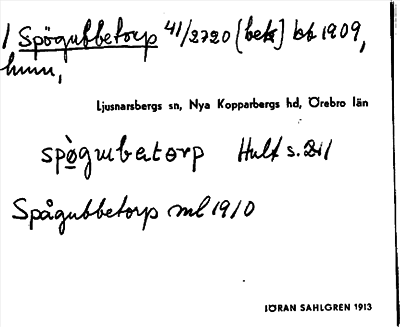 1 Spögubbetorp 41/2720 (bek) bb 1909,
hmn,
Ljusnarsbergs sn, Nya Kopparbergs hd, Örebro län
spògubatorp Hult s. 211
Spågubbetorp ml 1910
JÖRAN SAHLGREN 1913